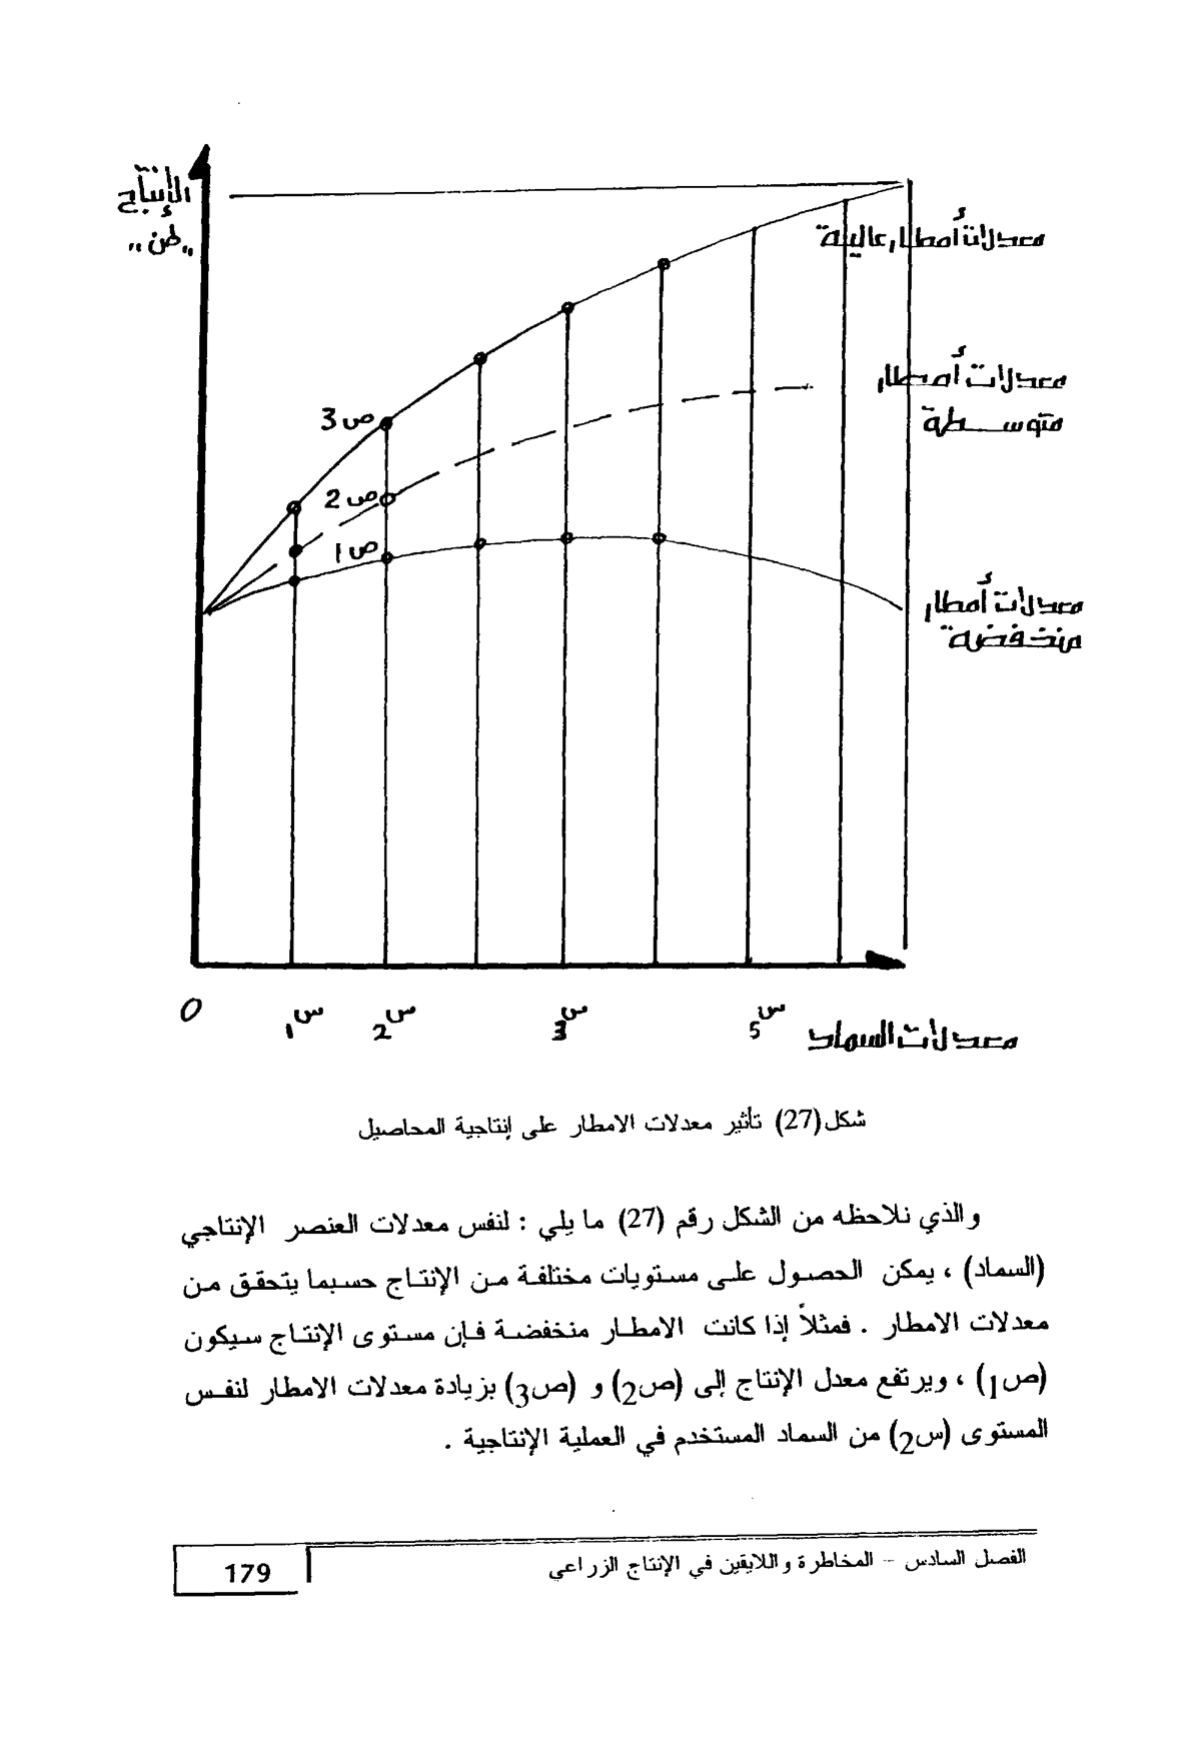 الإنتاج
"طن"
معدلات أمطار عالية
معدلات أمطار
متوسطة
ص3
ص2
ص1
معدلات أمطار
منخفضة
0 س1 س2 س3 س5 معدلات السماد
شكل(27) تأثير معدلات الامطار على إنتاجية المحاصيل
والذي نلاحظه من الشكل رقم (27) ما يلي : لنفس معدلات العنصر الإنتاجي
(السماد) ، يمكن الحصول على مستويات مختلفة من الإنتاج حسبما يتحقق من
معدلات الامطار . فمثلاً إذا كانت الامطار منخفضة فإن مستوى الإنتاج سيكون
(ص1) ، ويرتفع معدل الإنتاج إلى (ص2) و (ص3) بزيادة معدلات الامطار لنفس
المستوى (س2) من السماد المستخدم في العملية الإنتاجية .
الفصل السادس – المخاطرة واللايقين في الإنتاج الزراعي
179